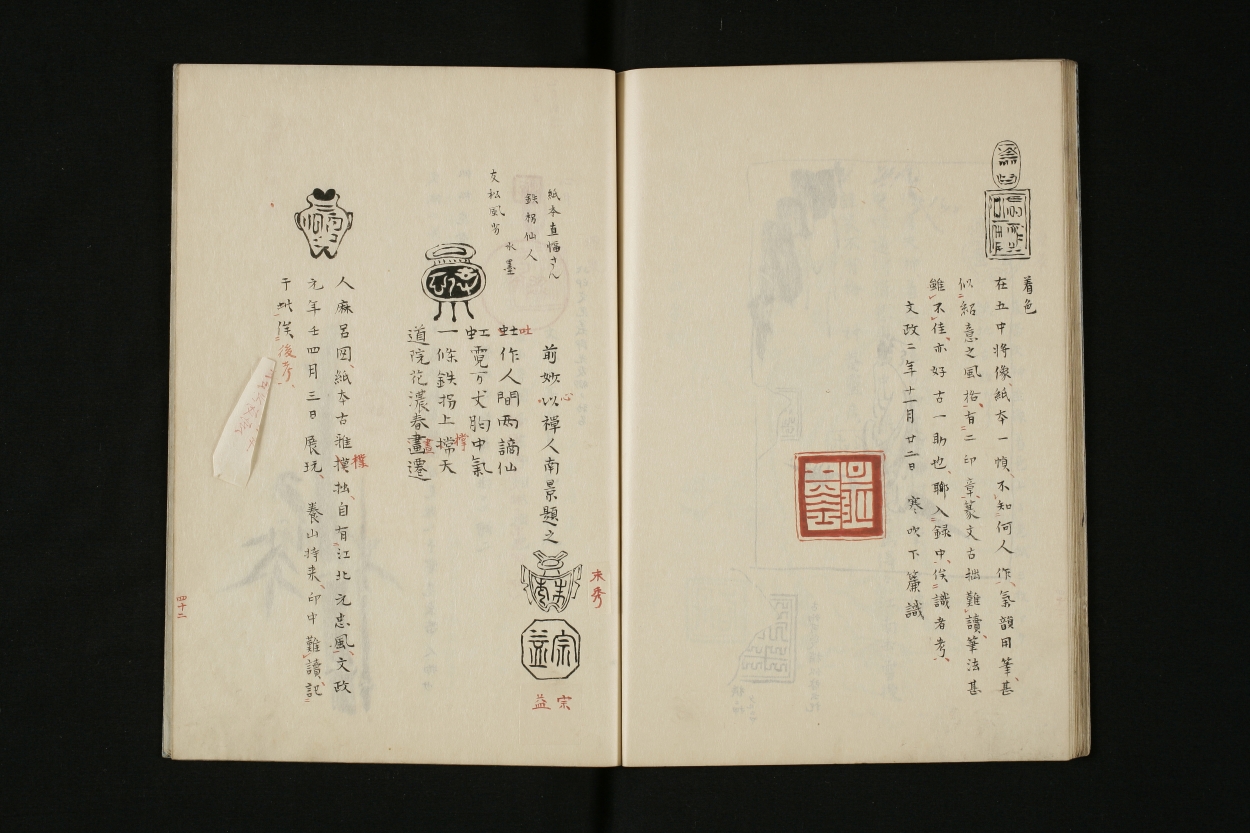 着色
在五中将像紙本一幀不知何人作氣韻用筆甚
似紹意之風格有二印章篆文古拙難讀筆法甚
雖不佳亦好古一助也聊入録中俟識者考
文政二年十一月廿二日　寒吹下簾識
紙本直幅
鉄拐仙人
水墨
友松風
前妙心以禪人南景題之
吐
虹作人間両謫仙
虹霓万丈胸中氣
一條鉄拐上撐天
撑
道院花濃春畫遷
晝
未秀
宗益
宗
益
人麻呂図紙本古雅撲拙自有江北元忠風文政
樸
元年壬四月三日展玩　養山持来印中難讀記
于此俟後考
四十二